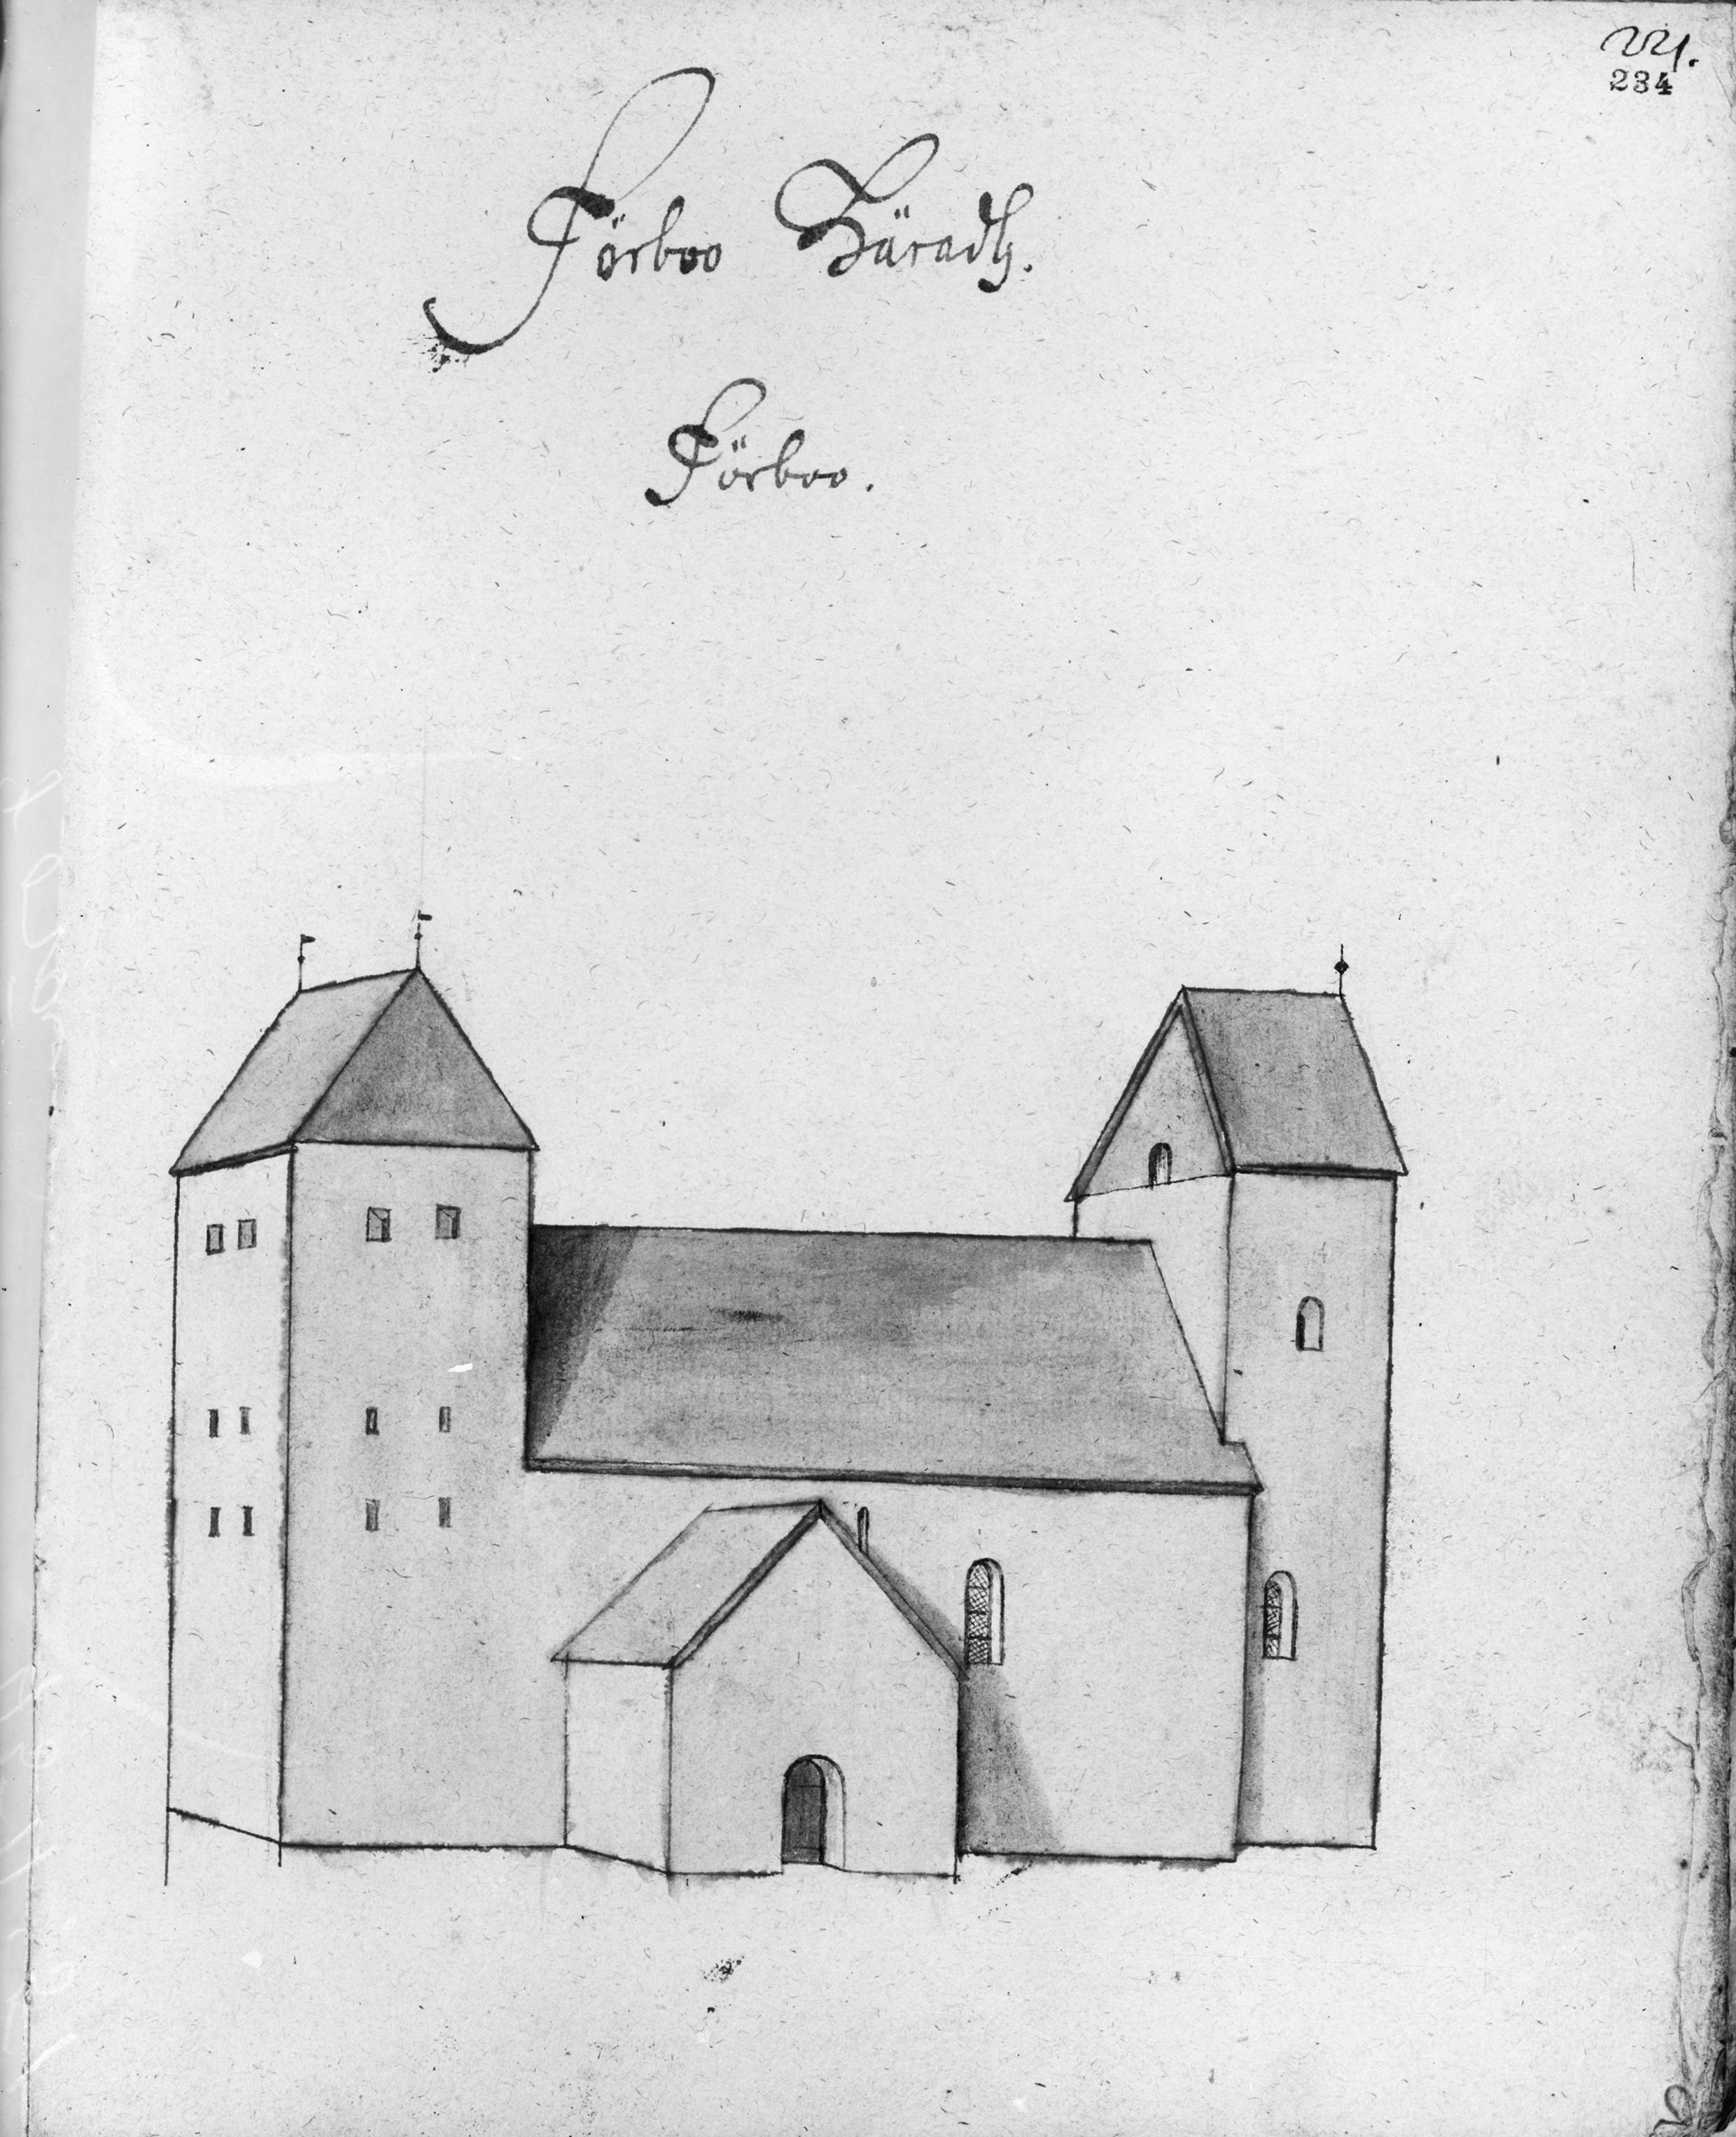 221.
234
Förboo Häradh.
Förboo.